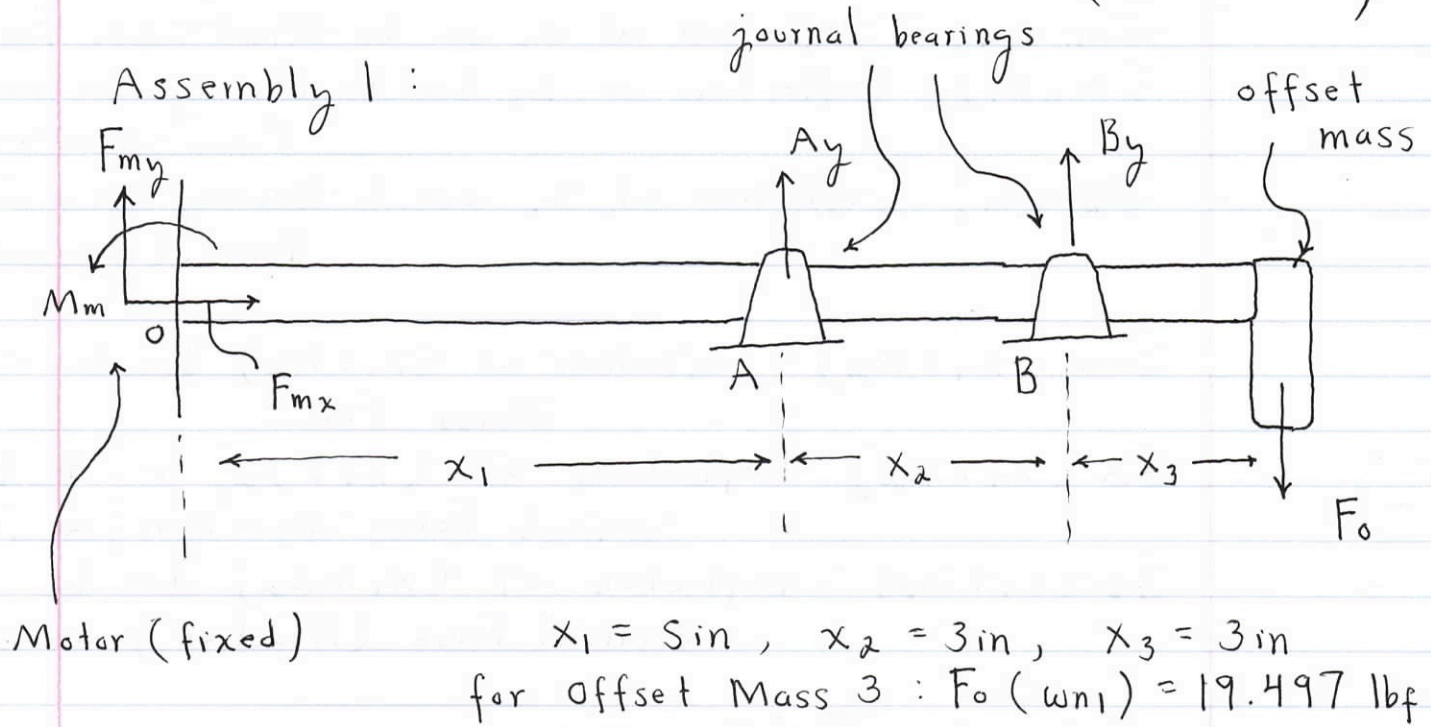 journal bearings
Assembly 1 :
offset
mass
Fmy
Ay
By
Mm
O
Fmx
A
B
x1
x2
x3
Fo
Motor (fixed)
x1 = 5in, x2 = 3in, x3 = 3in
for Offset Mass 3 : Fo (wn1) = 19.497 lbf